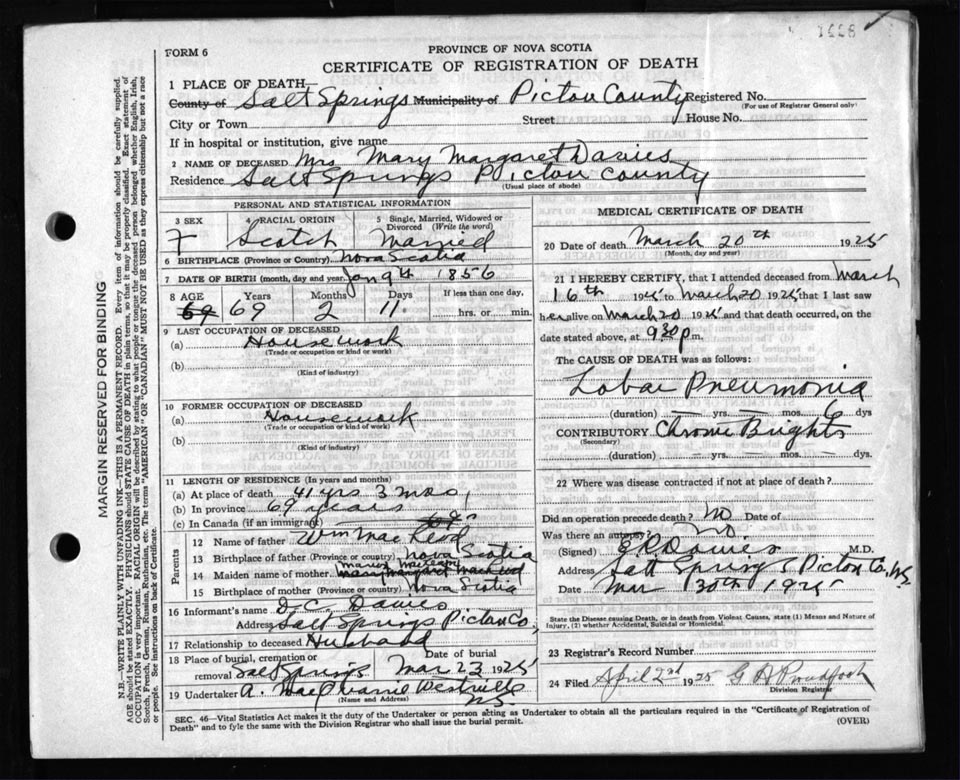 FORM 6
PROVINCE OF NOVA SCOTIA
CERTIFICATE OF REGISTRATION OF DEATH
1 PLACE OF DEATH
County of Salt Springs Municipality of Pictou County Registered No.
(For use of Registrar General only)
City or Town Street House No.
If in hospital or institution, give name
2 NAME OF DECEASED Mrs Mary Margaret Davies
Residence Salt Springs Pictou County
(Usual place of abode)
PERSONAL AND STATISTICAL INFORMATION
3 SEX 4 RACIAL ORIGIN 5 Single, Married, Widowed or Divorced (Write the word)
F Scotch Married
6 BIRTHPLACE (Province or Country) Nova Scotia
7 DATE OF BIRTH (month, day and year) Jan 9th 1856
8 AGE Years Months Days If less than one day,
69 69 2 11 hrs. or min.
9 LAST OCCUPATION OF DECEASED
(a) Housework
(Trade or occupation or kind of work)
(b)
(Kind of industry)
10 FORMER OCCUPATION OF DECEASED
(a) Housework
(Trade or occupation or kind of work)
(b)
(Kind of industry)
11 LENGTH OF RESIDENCE (In years and months)
(a) At place of death 41 yrs 3 mos,
(b) In province 69 years
(c) In Canada (if an immigrant)
Parents
12 Name of father Wm MacLeod
13 Birthplace of father (Province or country) Nova Scotia
14 Maiden name of mother
15 Birthplace of mother (Province or country) Nova Scotia
16 Informant's name D. C. Davies
Address Salt Springs Pictou Co,
17 Relationship to deceased Husband
18 Place of burial, cremation or removal Salt Springs Date of burial Mar 23 1925
19 Undertaker A. Westville
(Name and Address) NS
MEDICAL CERTIFICATE OF DEATH
20 Date of death March 20th 1925
(Month, day and year)
21 I HEREBY CERTIFY, that I attended deceased from March
16th 1925 to March 20 1925 that I last saw
her alive on March 20 1925 and that death occurred, on the
date stated above, at 9.30 p.m.
The CAUSE OF DEATH was as follows:
Lobar Pneumonia
(duration) — yrs. — mos. 6 dys
CONTRIBUTORY Chronic Brights
(Secondary)
(duration) yrs. mos. dys.
22 Where was disease contracted if not at place of death?
Did an operation precede death? No Date of
Was there an autopsy? No
(Signed) Davies M.D.
Address Salt Springs Pictou Co, N.S.
Date Mar 30th 1925
State the Disease Causing Death, or in Death from Violent Causes, state (1) Means and Nature of Injury, (2) whether Accidental, Suicidal or Homicidal.
23 Registrar's Record Number
24 Filed April 2nd 1925 G Proudfoot
Division Registrar
SEC. 46—Vital Statistics Act makes it the duty of the Undertaker or person acting as Undertaker to obtain all the particulars required in the "Certificate of Registration of
Death" and to fyle the same with the Division Registrar who shall issue the burial permit. (OVER)
MARGIN RESERVED FOR BINDING
N.B.—WRITE PLAINLY WITH UNFADING INK—THIS IS A PERMANENT RECORD. Every item of information should be carefully supplied.
AGE should be stated EXACTLY. PHYSICIANS should STATE CAUSE OF DEATH in plain terms, so that it may be properly classified. Exact statement of
OCCUPATION is very important. RACIAL ORIGIN will be described by stating to what people or tongue the deceased person belonged whether English, Irish,
Scotch, French, German, Russian, Ruthenian, etc. The terms "AMERICAN" or "CANADIAN" MUST NOT BE USED as they express citizenship but not a race
or people. See instructions on back of Certificate.